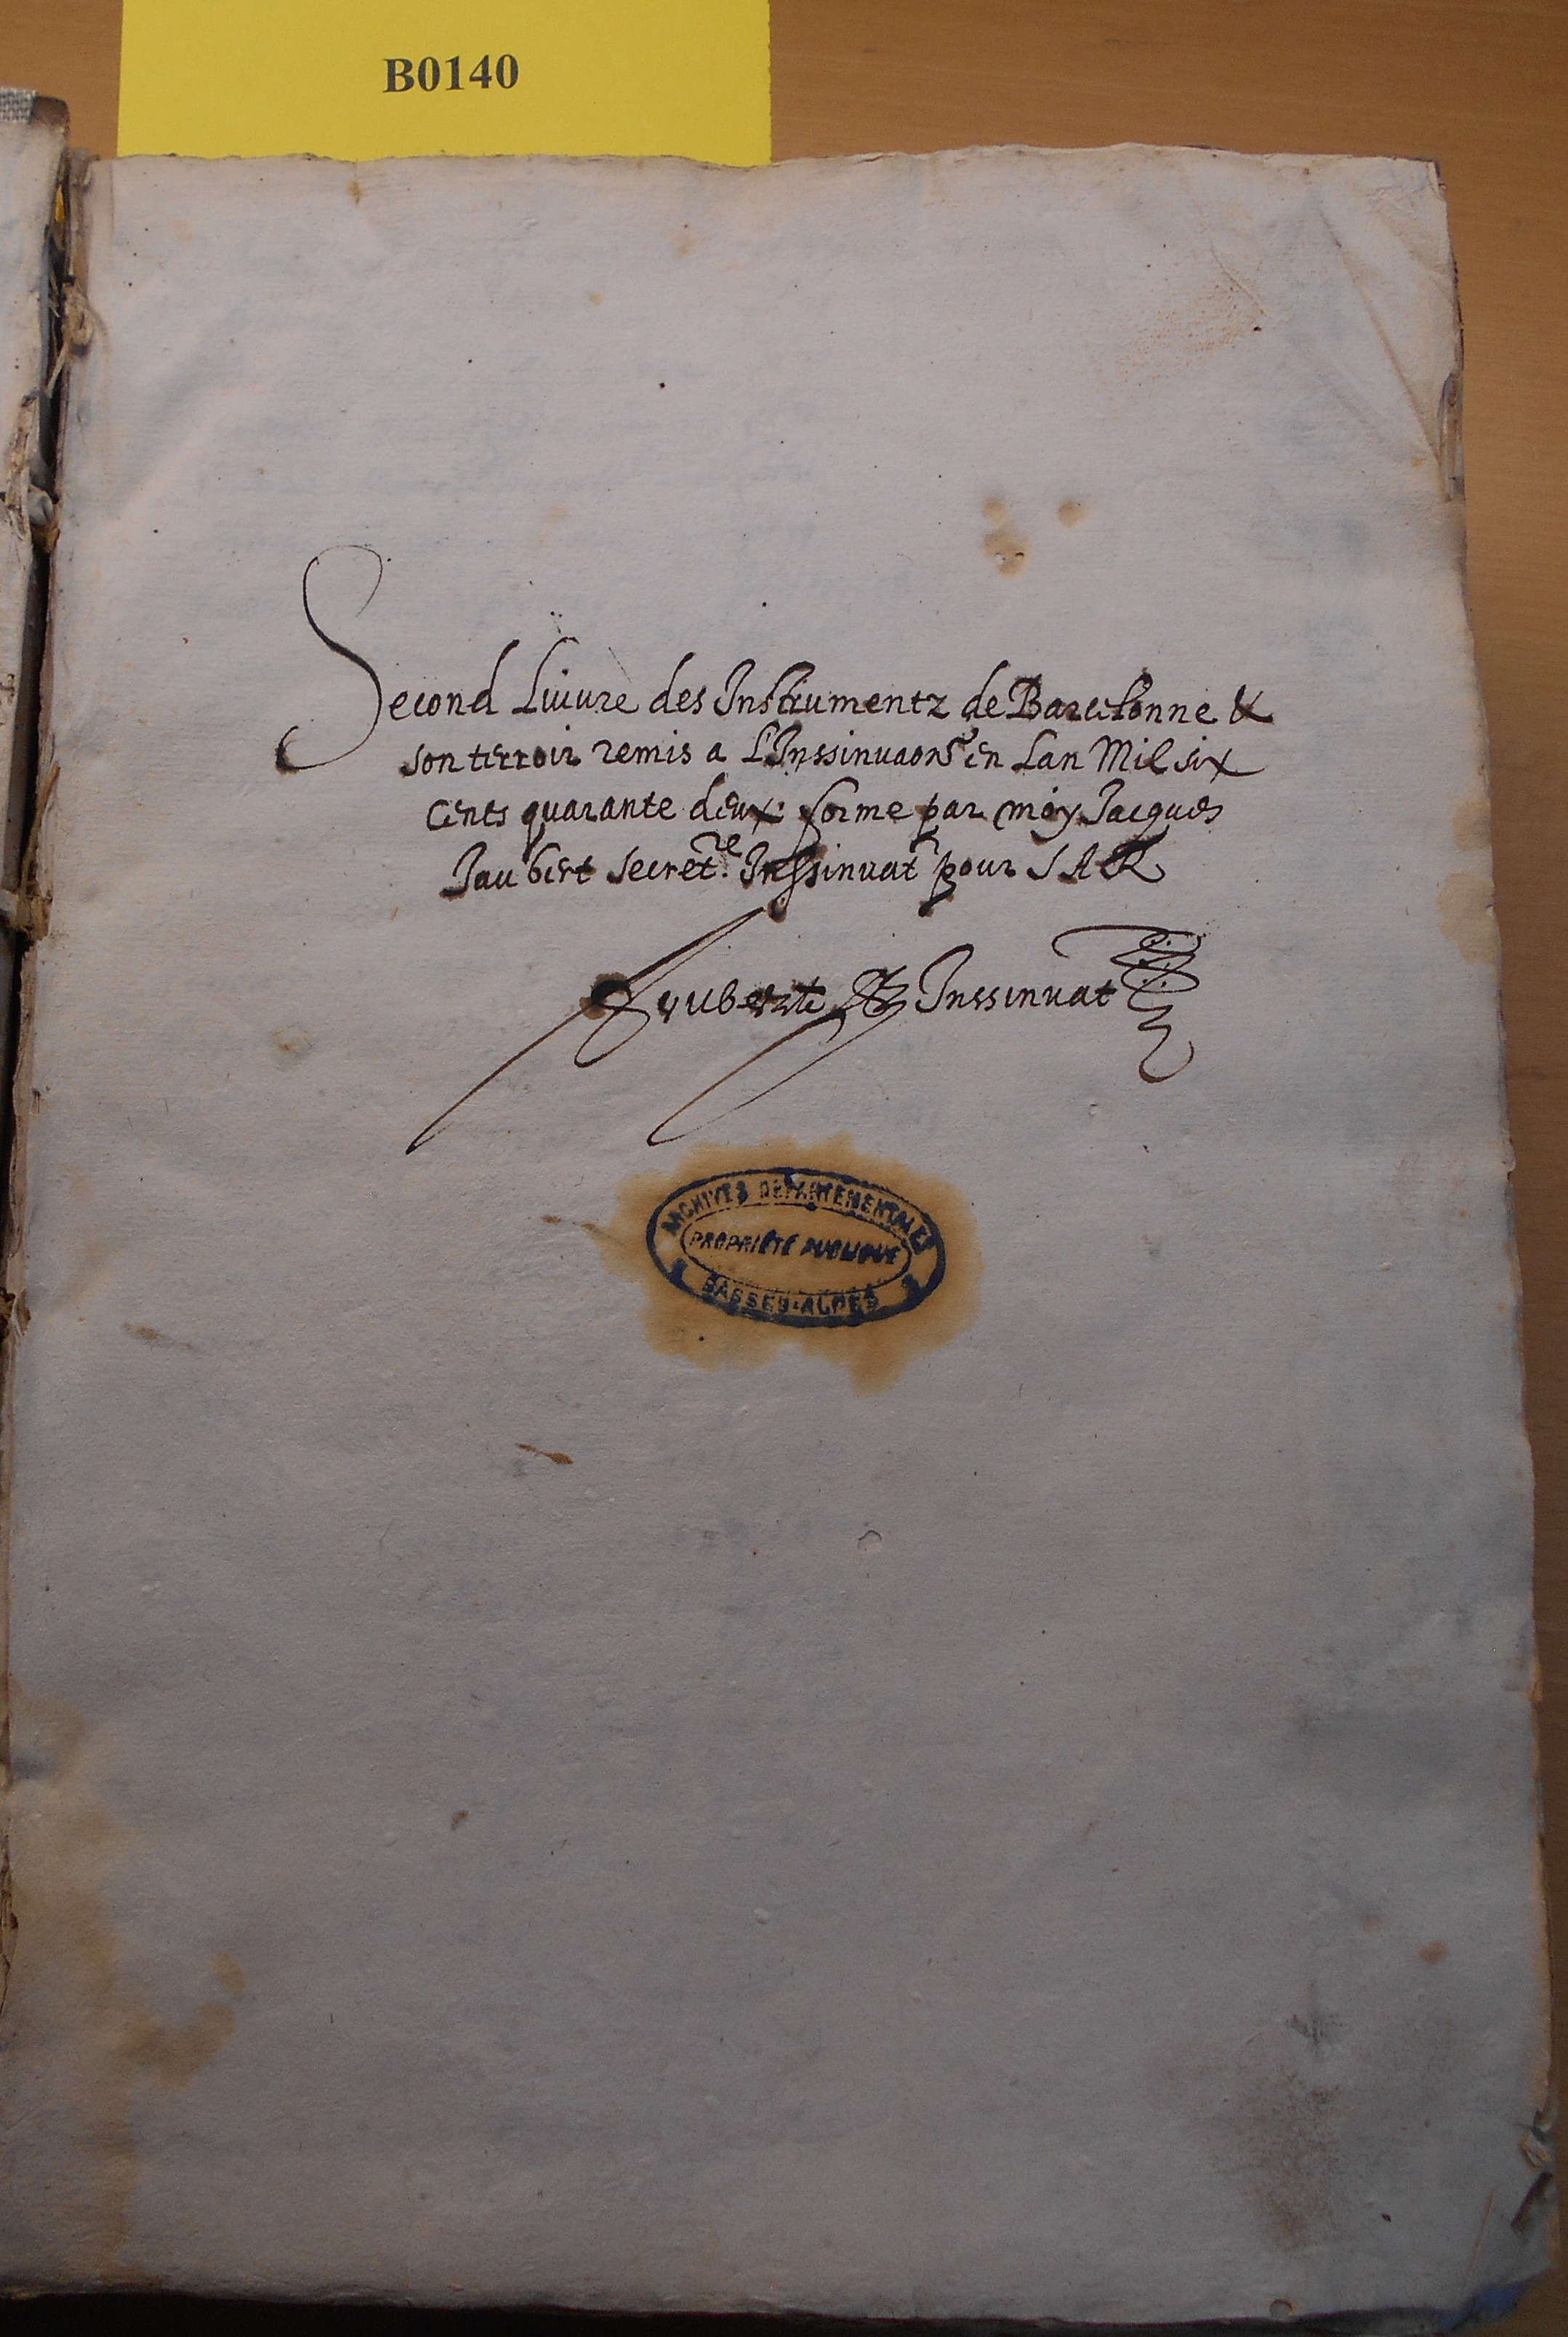 B0140
Second Liuure des Instrumentz de Barcelonne &
son terroir remis a L'Inssinuaon en Lan Mil six
Cents quarante deux forme par moy Jacques
Jaubert Secret.re Inssinuat.r pour S A R
Jauberte Inssinuat
ARCHIVES DEPARTEMENTALES
PROPRIÉTÉ PUBLIQUE
BASSES-ALPES